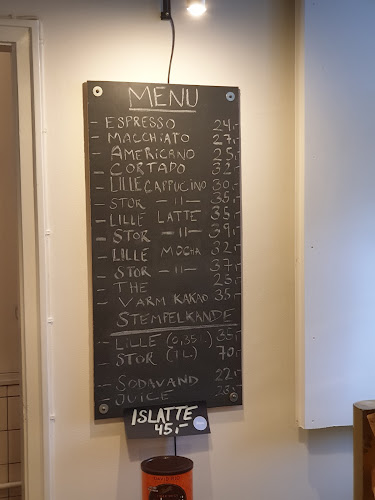 MENU
- ESPRESSO 24,-
- MACCHIATO 27,-
- AMERICANO 25,-
- CORTADO 32,-
- LILLE CAPPUCINO 30,-
- STOR -11- 35,-
- LILLE LATTE 35,-
- STOR -11- 39,-
- LILLE MOCHA 32,-
- STOR -11- 37,-
- THE 25,-
- VARM KAKAO 35,-
STEMPELKANDE
- LILLE (0,35L) 35,-
- STOR (1L) 70,-
- SODAVAND 22,-
- JUICE 28,-
ISLATTE
45,-